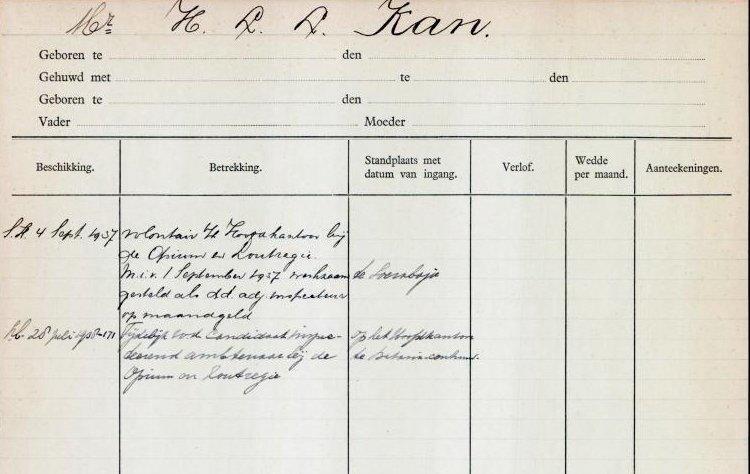 Mr. H. L. L. Kan.
Geboren te den
Gehuwd met te den
Geboren te den
Vader Moeder
Beschikking. Betrekking. Standplaats met datum van ingang. Verlof. Wedde per maand. Aanteekeningen.
4 Sept. 1937 volontair Hoofdkantoor bij
de Opium en Zoutregie
M.i.v. 1 September 1937 werkzaam te Soerabaja
gesteld als dd. adj. inspecteur
op maandgeld
28 Juli Tijdelijk candidaat inspec- op het Hoofdkantoor
teerend ambtenaar bij de te Batavia centrum.
Opium en Zoutregie